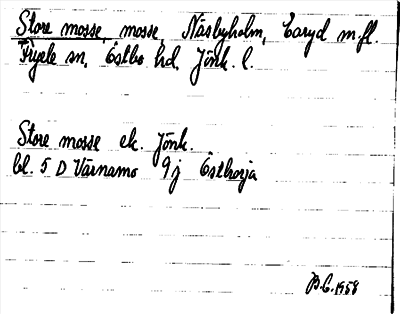 Store mosse, mosse, Näsbyholm, Earyd m.fl.
Fryele sn, Östbo hd, Jönk. l.
Store mosse ek. Jönk.
bl. 5 D Värnamo 9j Östhorja
B.E. 1958